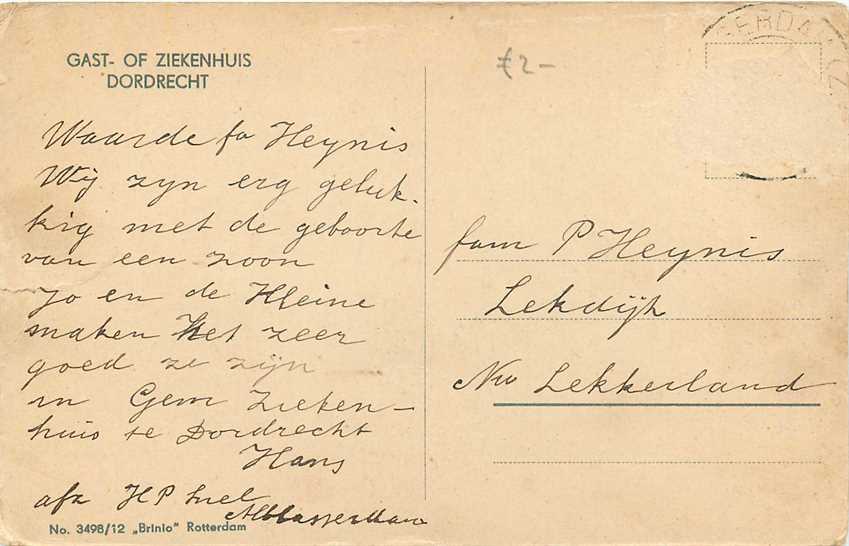 GAST- OF ZIEKENHUIS
DORDRECHT
£2-
Waarde fa Heynis
Wij zyn erg geluk-
kig met de geboorte
van een zoon
Jo en de Kleine
maken het zeer
goed ze zijn
in Gem Zieken-
huis te Dordrecht
Hans
afz H P Snel
Alblasserdam
No. 3498/12 „Brinio" Rotterdam
fam P Heynis
Lekdijk
Nw Lekkerland